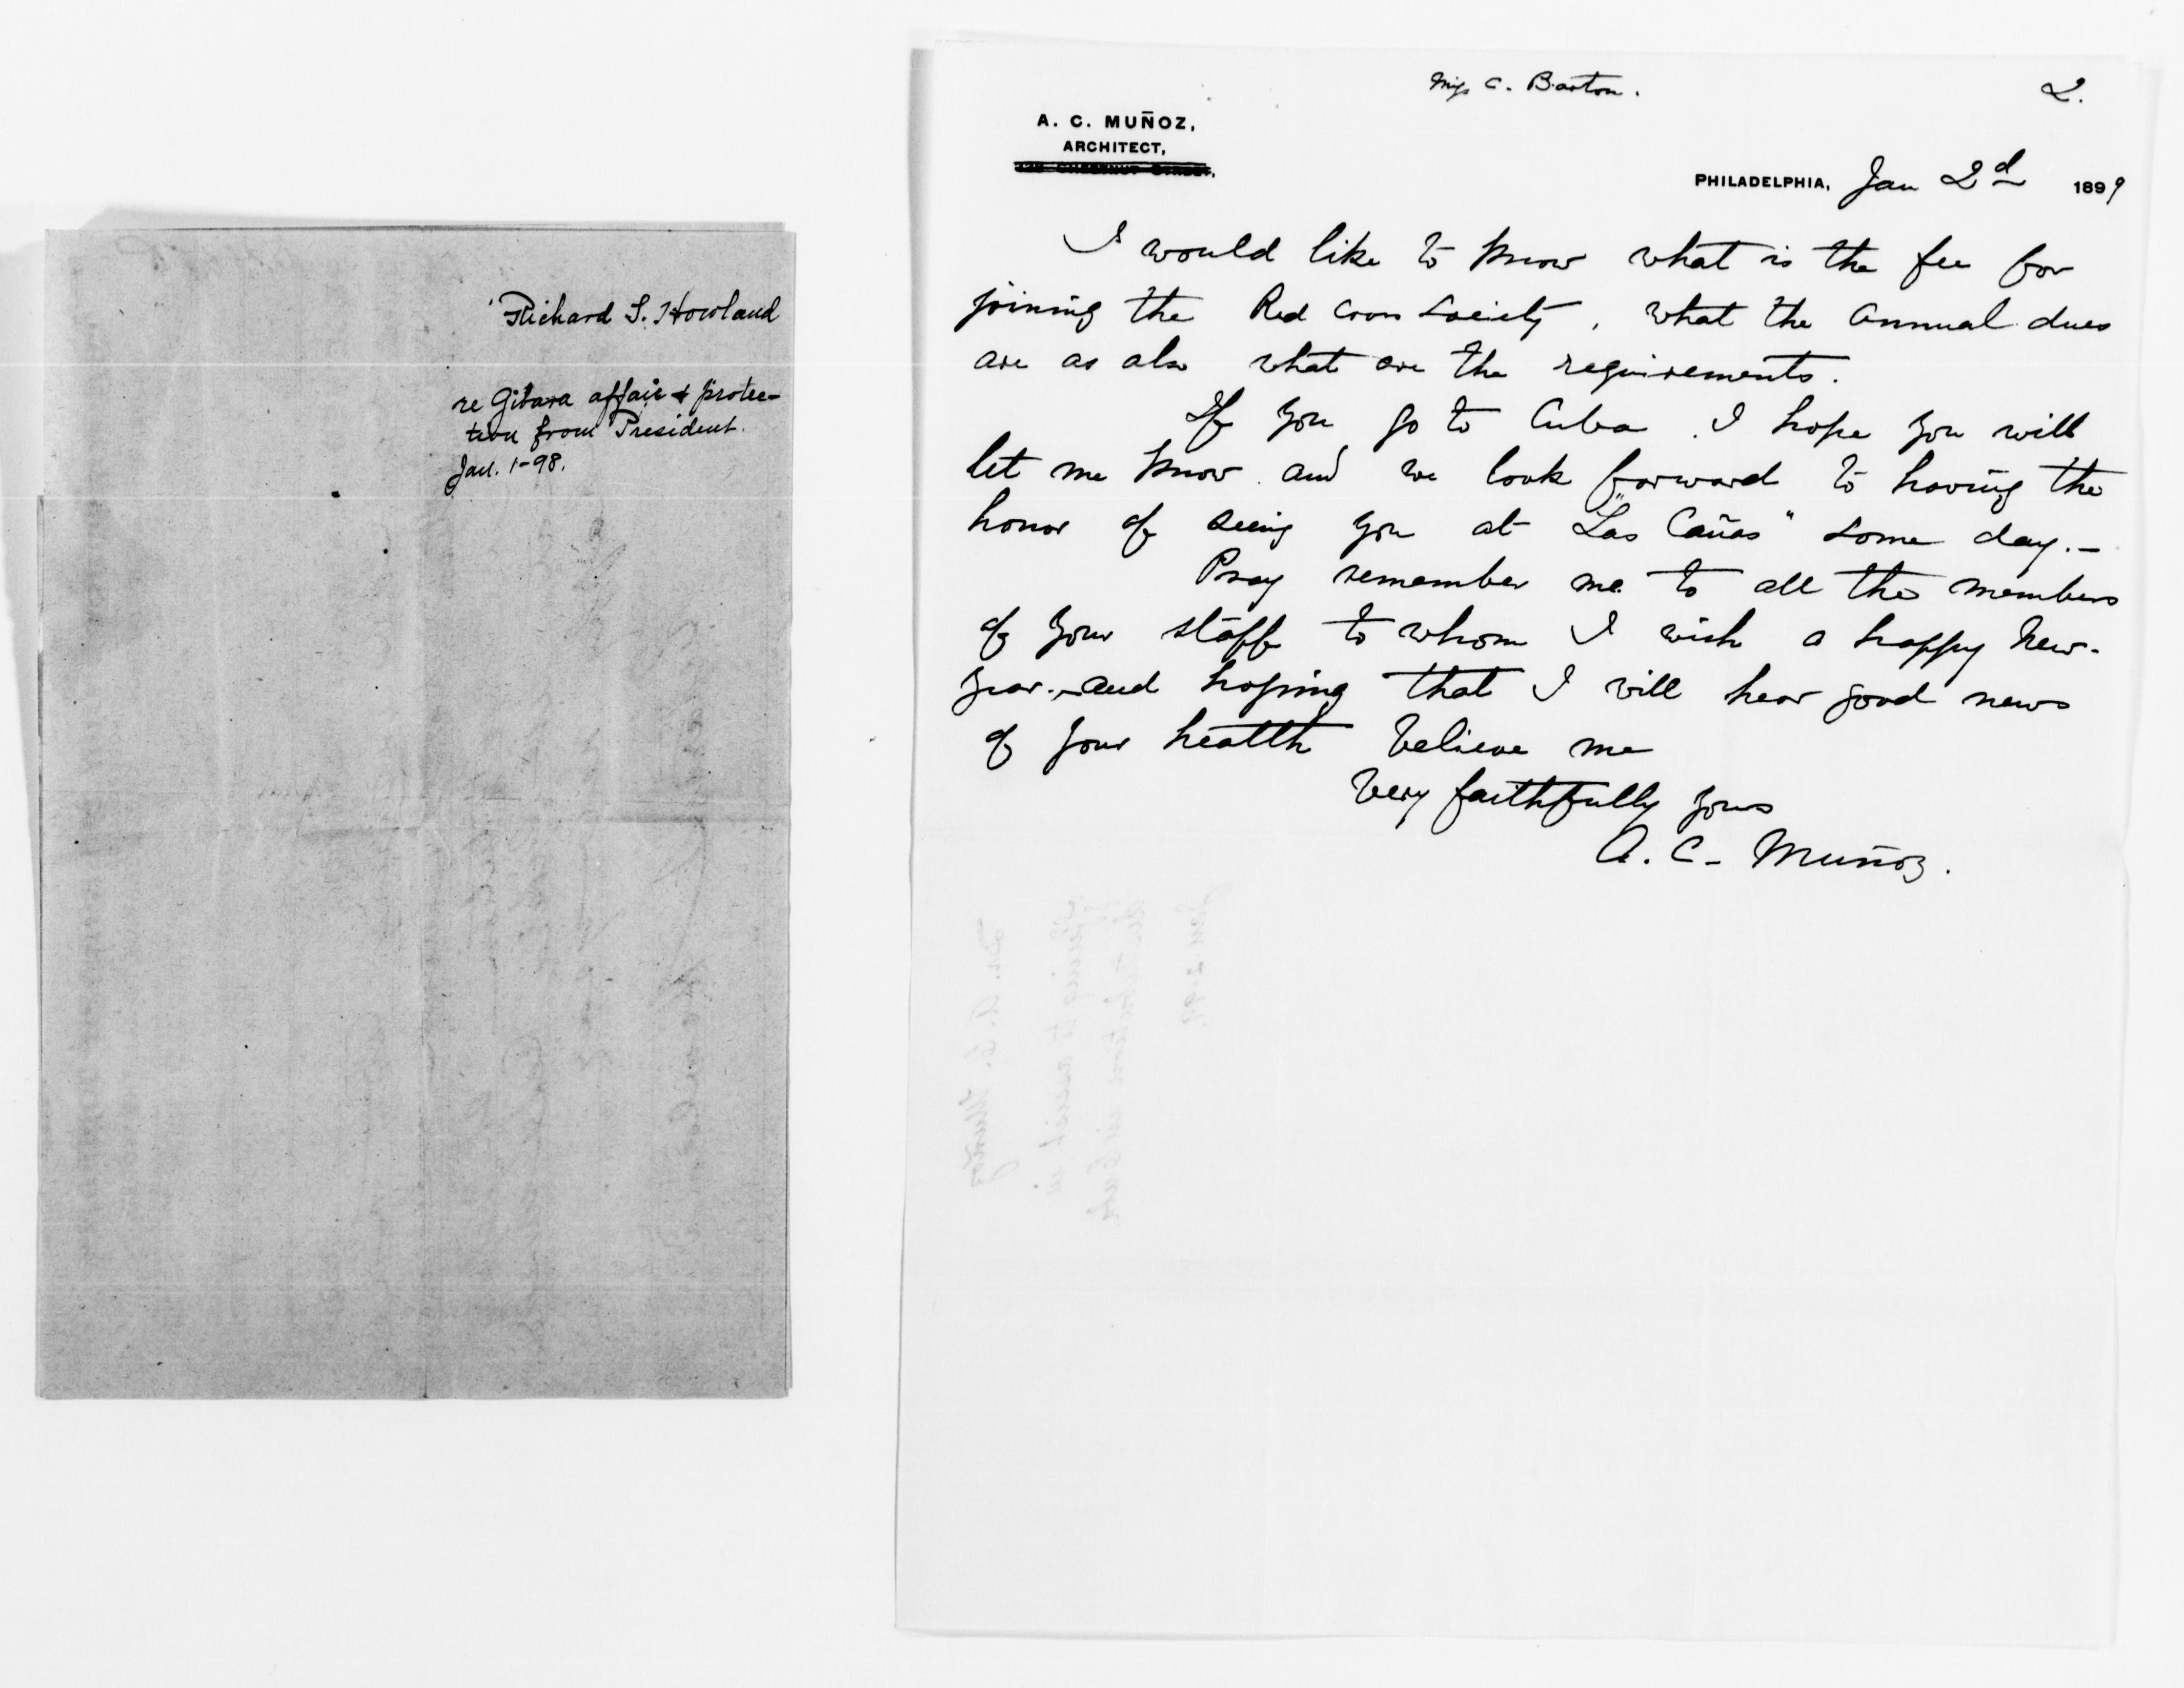 Richard S. Howland
re Gibara affair & protec-
tion from President.
Jan. 1-98.
Miss C. Barton.
2.
A. C. MUÑOZ,
ARCHITECT,
CHESTNUT STREET,
PHILADELPHIA, Jan 2d 1899
I would like to know what is the fee for
joining the Red Cross Society, what the annual dues
are as also what are the requirements.
If you go to Cuba. I hope you will
let me know and we look forward to having the
honor of seeing you at "Las Cañas" some day.-
Pray remember me to all the members
of your staff to whom I wish a happy New-
year.- and hoping that I will hear good news
of your health believe me
Very faithfully yours
A. C- Muñoz.
Dr. A. C. Muñoz
to assist in
distribution in Cuba
Jan. 2-99.